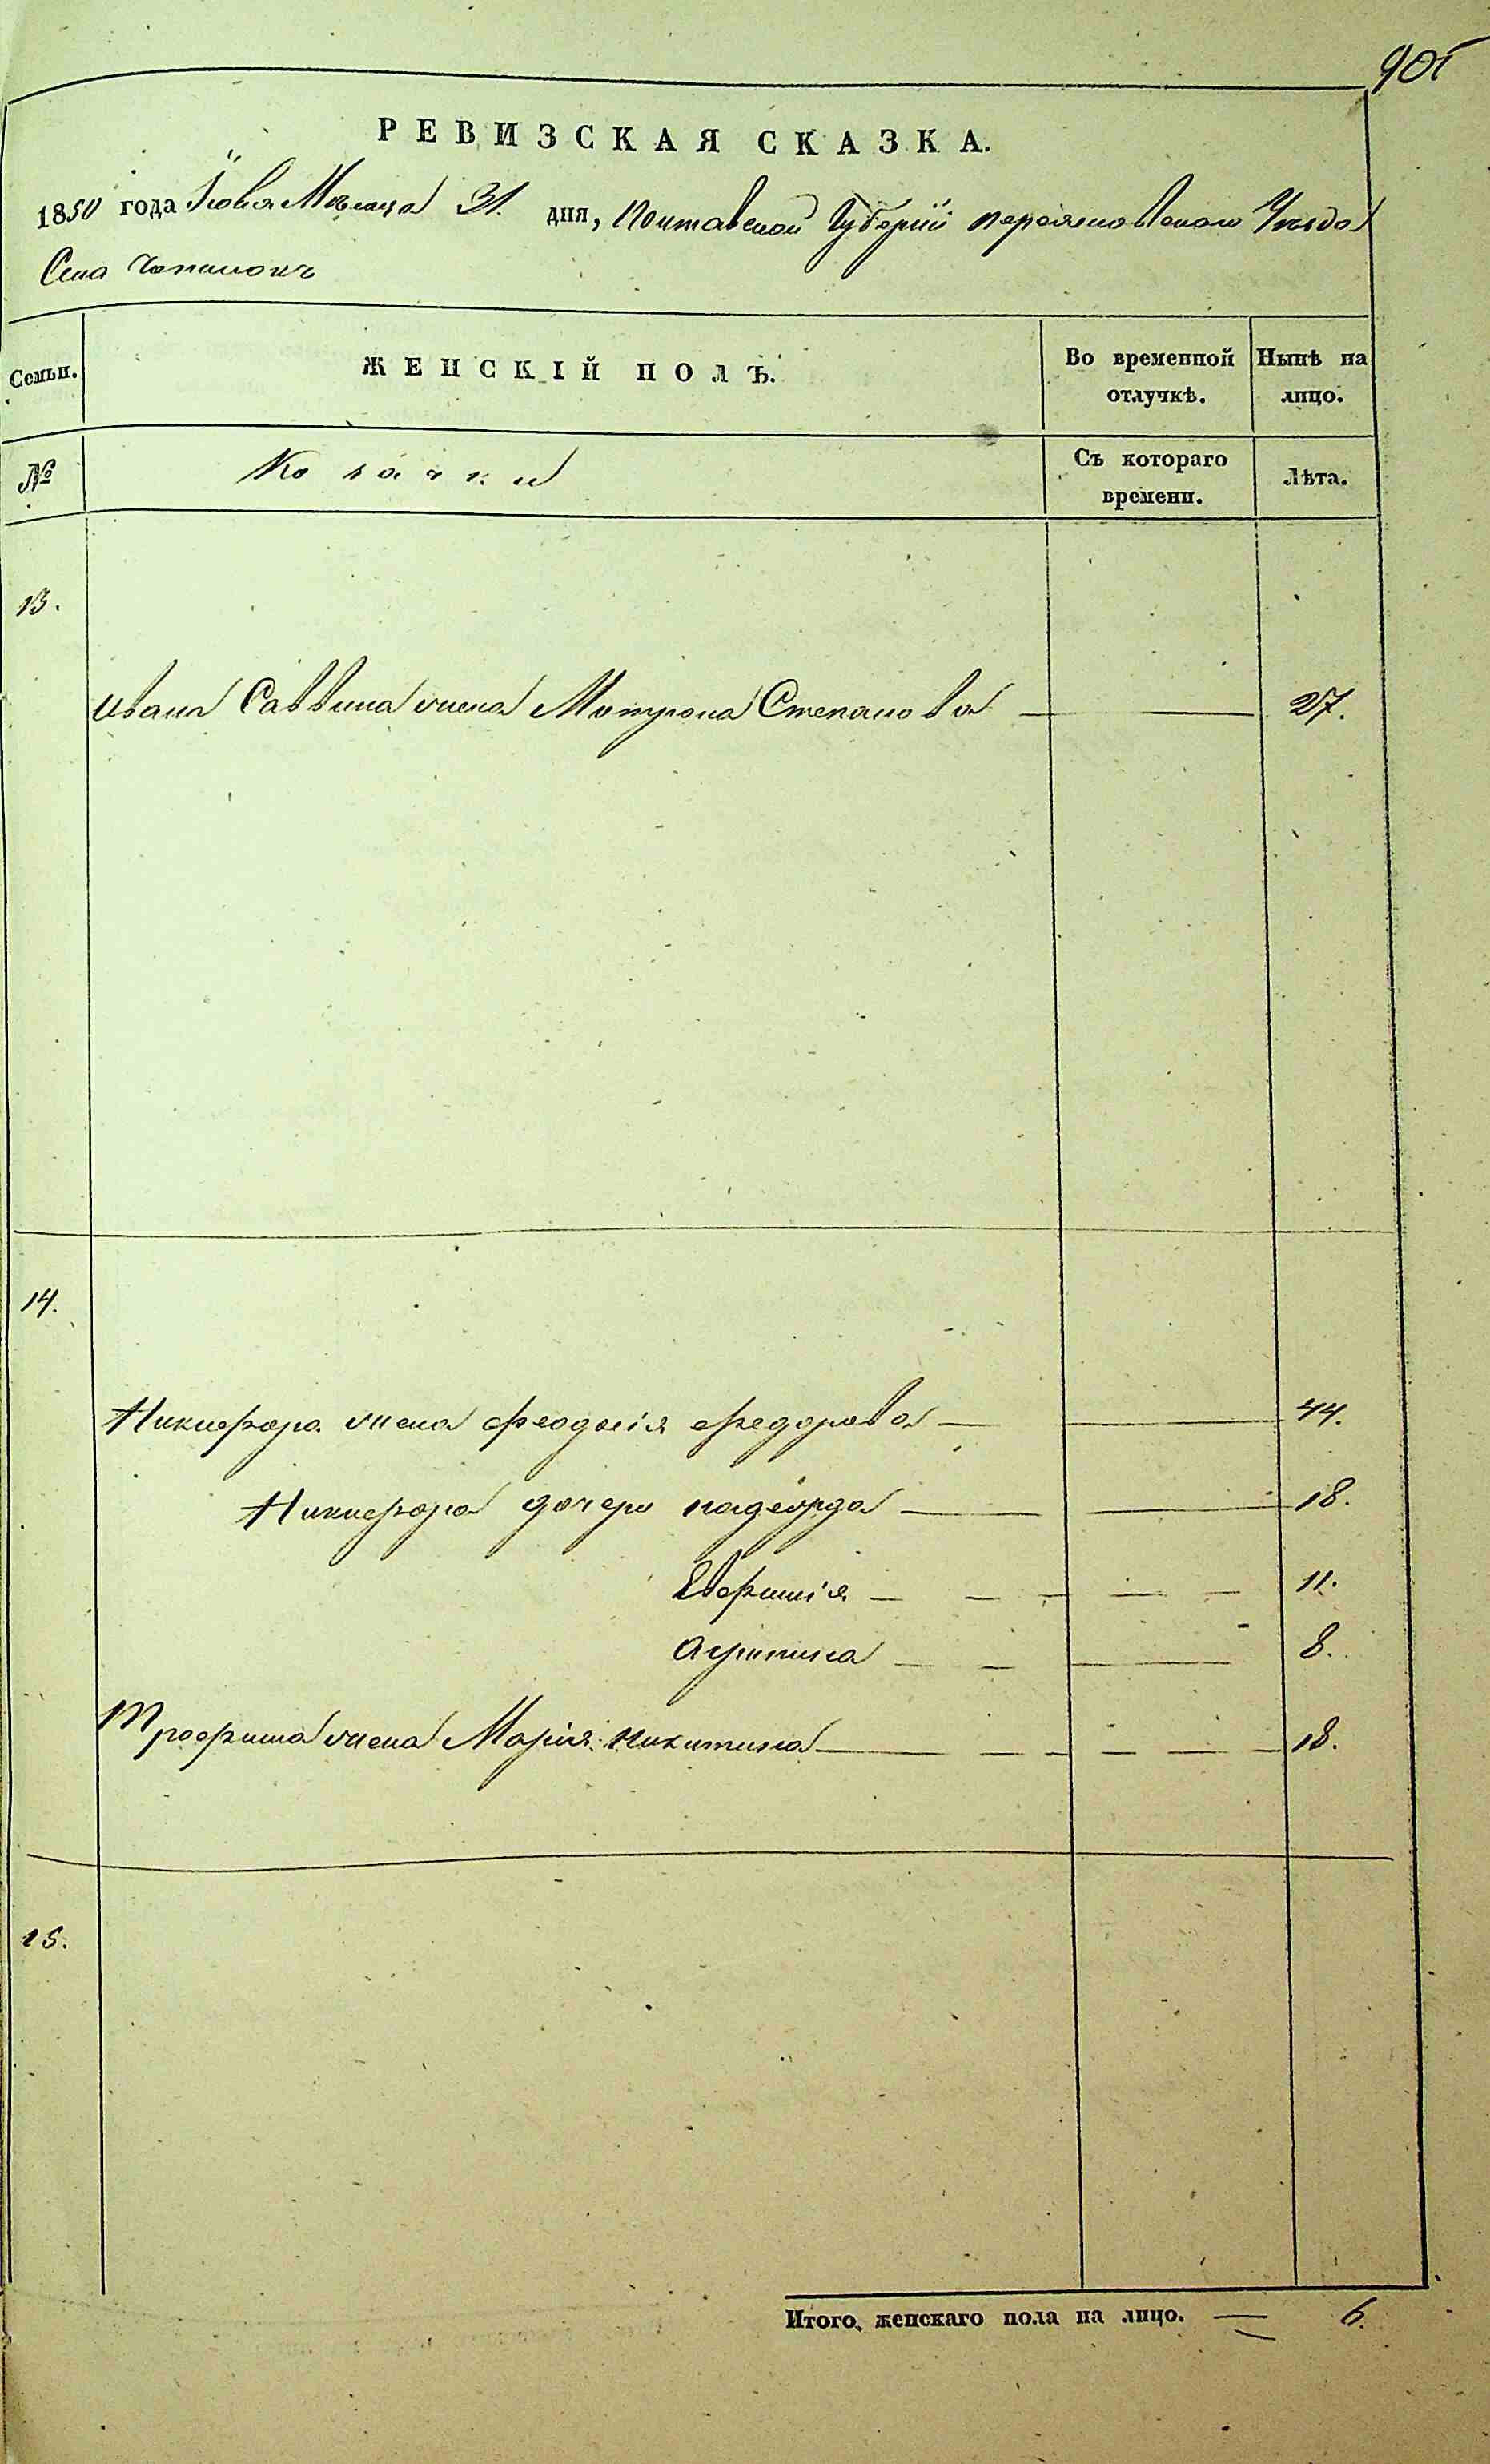 905
РЕВИЗСКАЯ СКАЗКА.
1850 года Іюля Месяца 31. дня, Полтавской Губерніи Переясловского Уѣзда
Села
Семьи.
ЖЕНСКІЙ ПОЛЪ.
Во временной отлучкѣ.
Нынѣ на лицо.
№
Козачки
Съ котораго времени.
Лѣта.
13.
Ивана Саввина жена Мотрона Степанова 27.
14.
Никифора жена Феодосія Федорова 44.
Никифора дочери Надежда 18.
Евфимія 11.
Агрипина 8.
Трофима жена Марія Никитина 18.
15.
Итого, женскаго пола на лицо. 6.